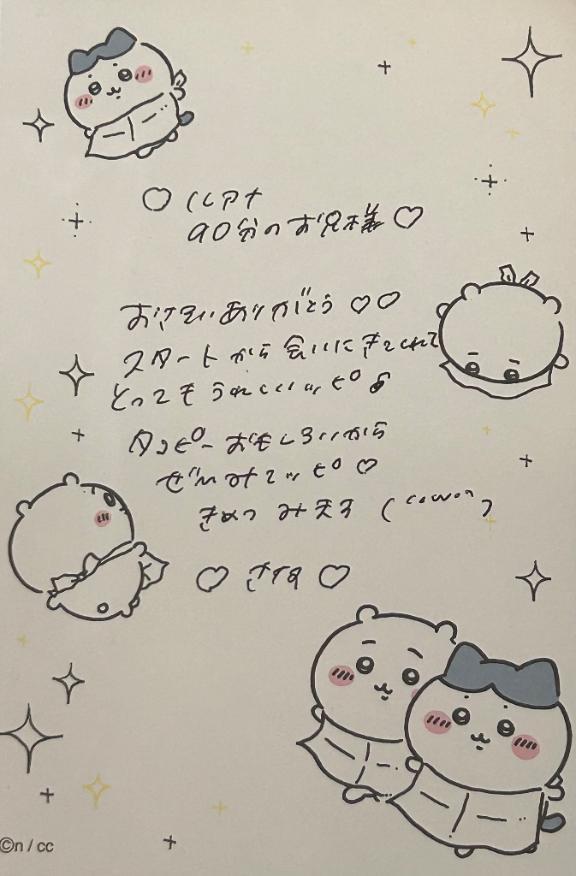 ♡
90分のお兄様♡
おさそいありがとう ♡♡
スタートから会いにきてくれて
とってもうれしいッピ♪
タコピーおもしろいから
ぜひみてッピ♡
きめつ
♡ ♡
©n / cc